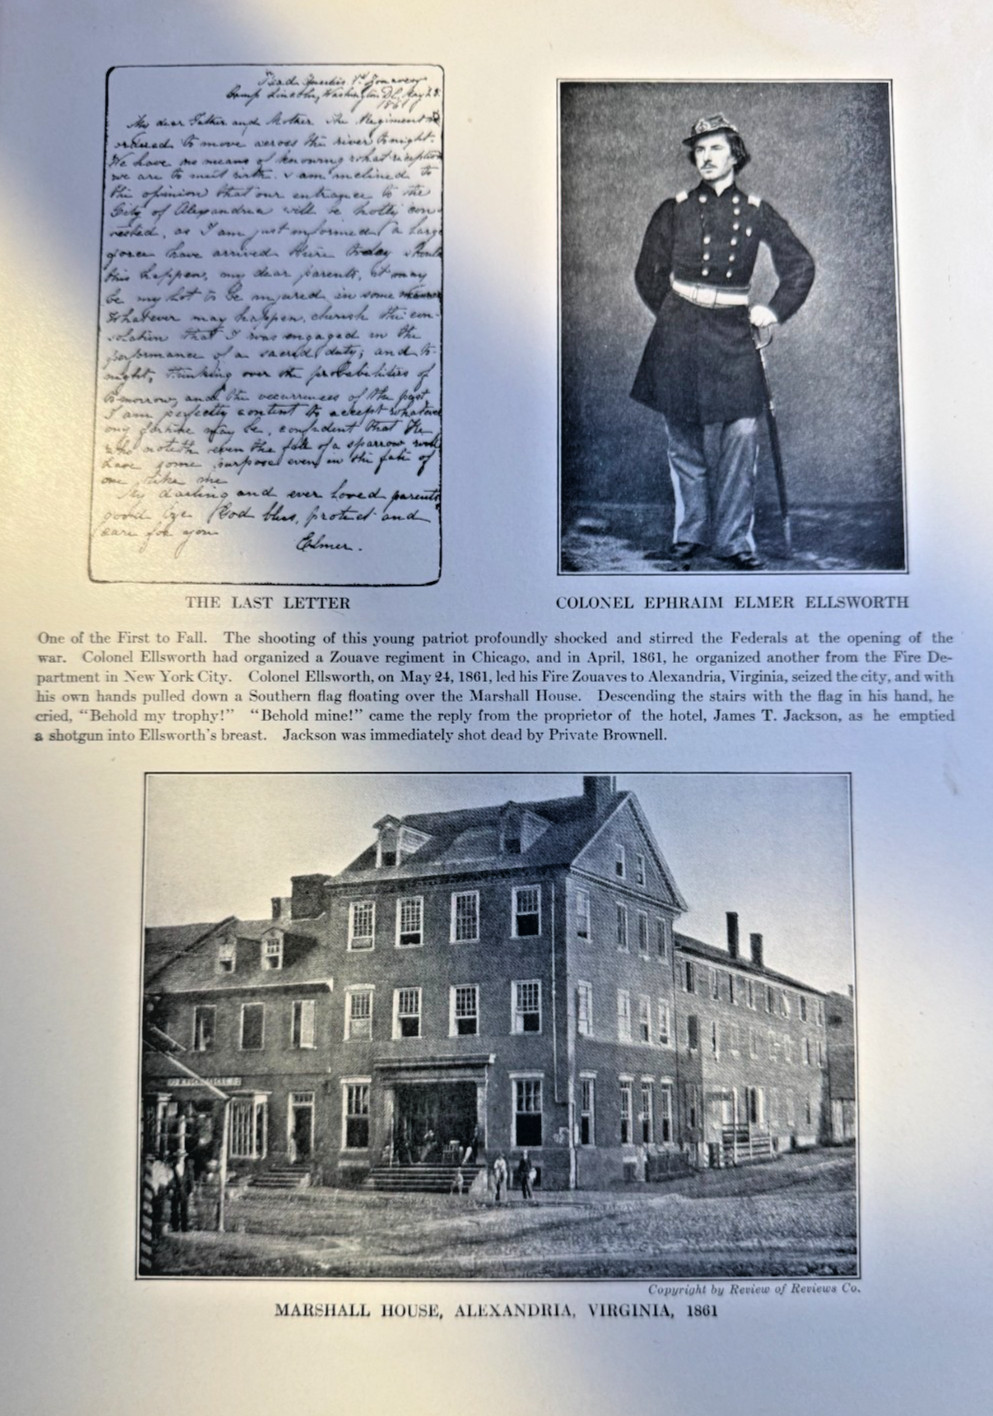 Head Quarters 1st Zouaves
Camp Lincoln, Washington D.C. May 23
1861
My dear Father and Mother The Regiment is
ordered to move across the river tonight.
We have no means of knowing what reception
we are to meet with. I am inclined to
the opinion that our entrance to the
City of Alexandria will be hotly con-
tested, as I am just informed a large
force have arrived there today. Should
this happen, my dear parents, it may
be my lot to be injured in some manner
Whatever may happen, cherish the con-
solation that I was engaged in the
performance of a sacred duty; and to-
night, thinking over the probabilities of
tomorrow, and the occurrences of the past
I am perfectly content to accept whatever
my fortune may be, confident that He
who noteth even the fall of a sparrow will
have some purpose even in the fate of
one like me
My darling and ever loved parents
good bye. God bless, protect and
care for you
Elmer.
THE LAST LETTER
COLONEL EPHRAIM ELMER ELLSWORTH
One of the First to Fall. The shooting of this young patriot profoundly shocked and stirred the Federals at the opening of the
war. Colonel Ellsworth had organized a Zouave regiment in Chicago, and in April, 1861, he organized another from the Fire De-
partment in New York City. Colonel Ellsworth, on May 24, 1861, led his Fire Zouaves to Alexandria, Virginia, seized the city, and with
his own hands pulled down a Southern flag floating over the Marshall House. Descending the stairs with the flag in his hand, he
cried, "Behold my trophy!" "Behold mine!" came the reply from the proprietor of the hotel, James T. Jackson, as he emptied
a shotgun into Ellsworth's breast. Jackson was immediately shot dead by Private Brownell.
Copyright by Review of Reviews Co.
MARSHALL HOUSE, ALEXANDRIA, VIRGINIA, 1861